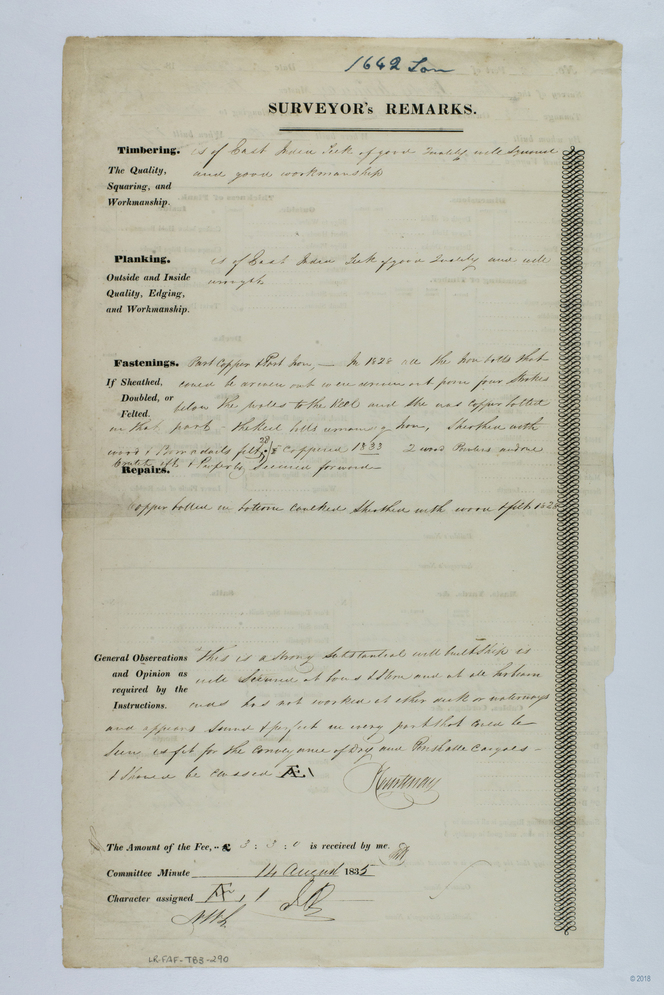 1642 Lon
SURVEYOR's REMARKS.
Timbering. is of East India Teak of good Quality, well squared
The Quality, and good workmanship
Squaring, and
Workmanship.
Planking. is of East India Teak of good Quality and well
Outside and Inside wrought
Quality, Edging,
and Workmanship.
Fastenings. Part Copper & Part Iron, — In 1828 all the Iron bolts that
If Sheathed, could be driven out were driven out from four Strakes
Doubled, or below the wales to the Keel and she was Copper bolted
Felted. in that part - the keel bolts remaing Iron, Sheathed with
wood & felt 28 Coppered 1833 2 wood and one
Repairs. secured forward
Copper bolted in bottom Caulked Sheathed with wood & felt 1828
General Observations This is a strong substantial well built Ship is
and Opinion as well secured at bows & Stern and at all
required by the ends has not worked at either deck or waterways
Instructions.
and appears sound & perfect in every part that could be
Seen is fit for the Conveyance of Dry and Perishable Cargoes —
& Should be classed Æ 1
The Amount of the Fee, £ 3 : 3 : 0 is received by me.
Committee Minute 14 August 1835
Character assigned Æ 1
LR-FAF-TB3-290
© 2018